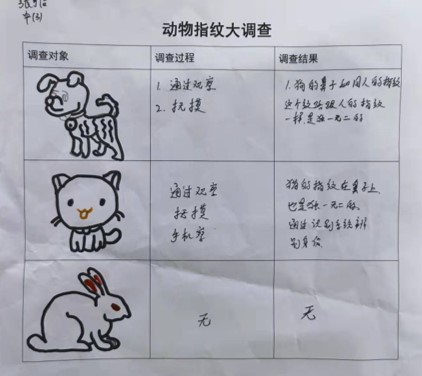 中(3)
动物指纹大调查
调查对象 调查过程 调查结果
1. 通过观察
2. 抚摸
1. 狗的鼻子如同人的指纹
这个纹路跟人的指纹
一样是独一无二的
通过观察
抚摸
手机查
猫的指纹在鼻子上
也是独一无二的
通过识别系统辨
别身份
无
无